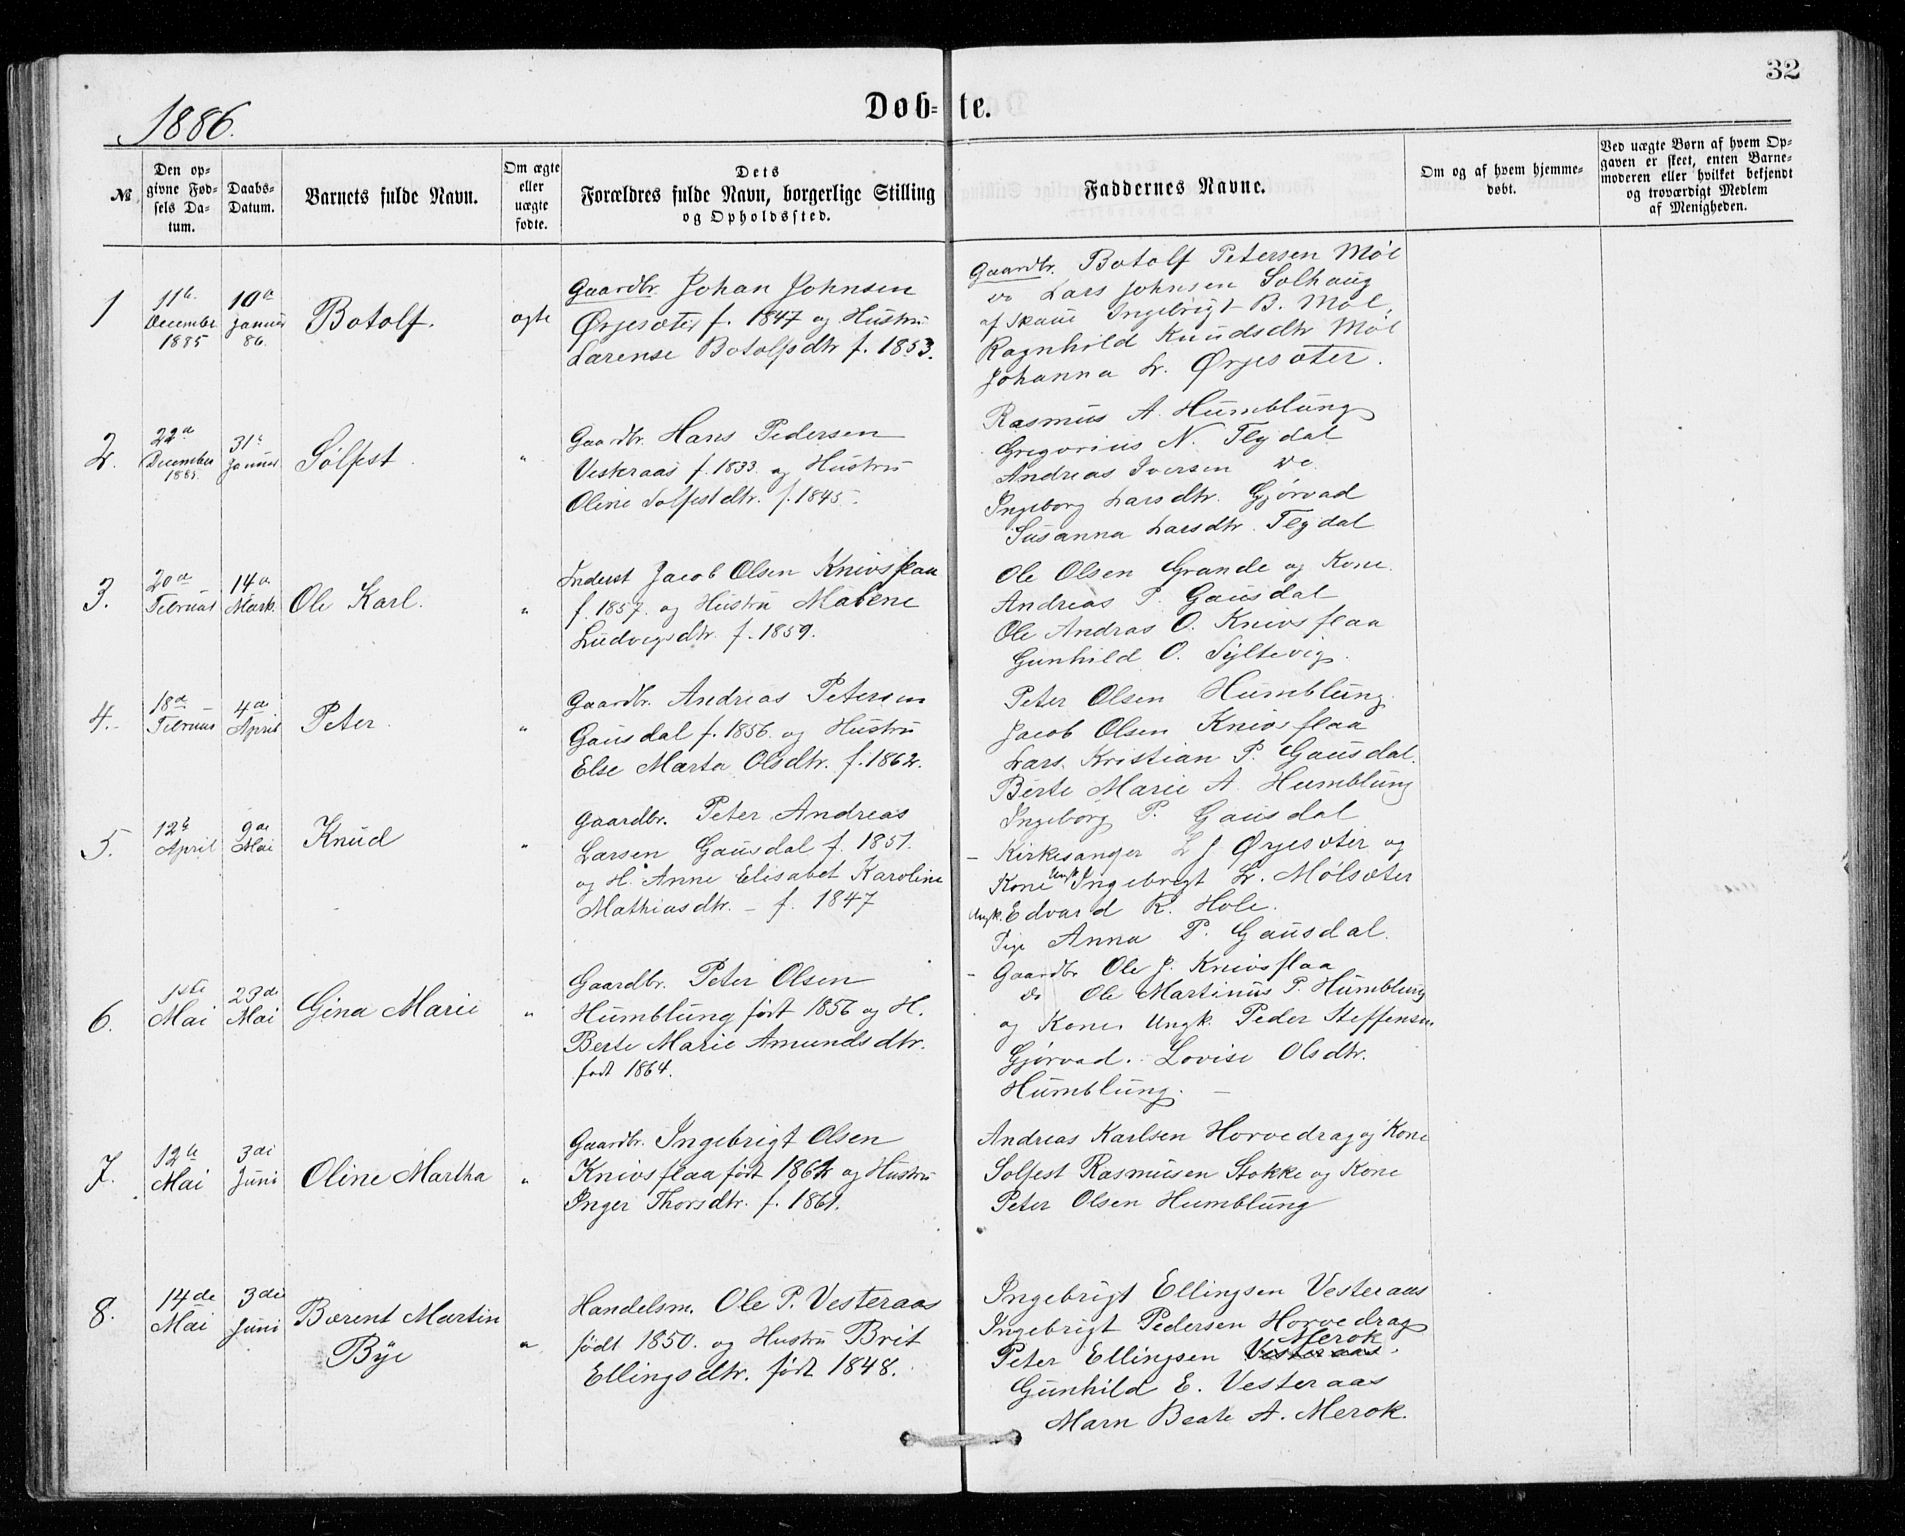 32
1886.
Døb-te.
№
Den op-
givne Fød-
sels Da-
tum.
Daabs-
Datum.
Barnets fulde Navn.
Om ægte
eller
uægte
fødte.
Dets
Forældres fulde Navn, borgerlige Stilling
og Opholdssted.
Faddernes Navne.
Om og af hvem hjemme-
døbt.
Ved uægte Børn af hvem Op-
gaven er skeet, enten Barne-
moderen eller hvilket bekjendt
og troværdigt Medlem
af Menigheden.
1
11te
December
1885
10de
Januar
86.
Botolf.
ægte
Gaardbr. Johan Johnsen
Ørjesæter f. 1847 og Hustru
Larense Botolfsdtr f. 1853.
Gaardbr. Botolf Petersen Møl
do Lars Johnsen Solhaug
af Skaue Ingebrigt B. Møl,
Ragnhild Knudsdtr Møl
Johanna L. Ørjesæter.
2.
22de
December
1885.
31te
Januar
Sølfest
"
Gaardbr. Hans Pedersen
Vesteraas f. 1833. og Hustru
Oline Solfestdtr. f. 1845.
Rasmus A. Humblung
Gregorius N. Flydal
Andreas Iversen do
Ingeborg Larsdtr. Gjørvad
Susanna Larsdtr. Flydal
3.
20de
Februar
14de
Marts.
Ole Karl.
"
Inderst Jacob Olsen Knivsflaa
f. 1857. og Hustru Malene
Ludvigsdtr. f. 1859.
Ole Olsen Grande og Kone.
Andreas P. Gausdal
Ole Andras O. Knivsflaa
Gunhild O. Syltevig.
4.
18de
Februar
4de
April
Peter
"
Gaardbr. Andreas Petersen
Gausdal f. 1856. og Hustru
Else Marta Olsdtr. f. 1862.
Peter Olsen Humblung.
Jacob Olsen Knivsflaa
Lars Kristian P. Gausdal.
Berte Marie A. Humblung
Ingeborg P. Gausdal
5.
12te
April
9de
Mai
Knud
"
Gaardbr. Peter Andreas
Larsen Gausdal f. 1851.
og H. Anne Elisabet Karoline
Mathiasdtr. - f. 1847
- Kirkesanger L J Ørjesæter og
Kone Ungk. Ingebrigt L. Mølsæter
Ungk. Edvard R. Hole.
Pige Anna P. Gausdal.
6.
1ste
Mai
23de
Mai
Gina Marie
"
Gaardbr. Peter Olsen
Humblung født 1856 og H.
Berte Marie Amundsdtr.
født 1864.
- Gaardbr Ole J. Knivsflaa
do Ole Martinus P. Humblung
og Kone. Ungk. Peder Steffensen
Gjørvad. Lovise Olsdtr.
Humblung. -
7.
12te
Mai
3die
Juni
Oline Martha
"
Gaardbr. Ingebrigt Olsen
Knivsflaa født 1862 og Hustru
Inger Thorsdtr. f. 1861.
Andreas Karlsen Horvedrag og Kone
Solfest Rasmusen Stokke og Kone
Peter Olsen Humblung
8.
14de
Mai
3die
Juni
Bærent Martin
Bye
"
Handelsm. Ole P. Vesteraas
født 1850. og Hustru Brit
Ellingsdtr. født 1848.
Ingebrigt Ellingsen Vesteraas
Ingebrigt Pedersen Horvedrag
Merok
Peter Ellingsen Vesteraas.
Gunhild E. Vesteraas
Marn Beate A. Merok.